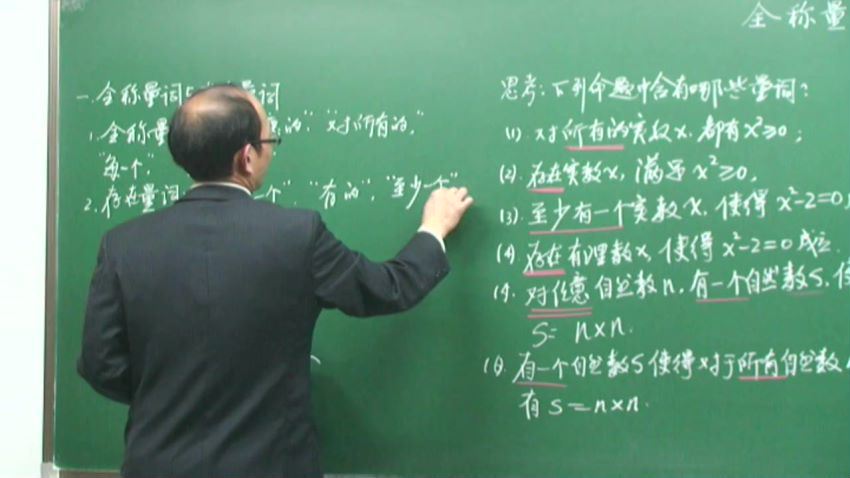 全称量
一.全称量词与 量词
1.全称量 的","对所有的",
"每一个".
2.存在量词 一个","有的","至少一个"
思考:下列命题中含有哪些量词?
(1).对所有的实数x,都有x²≥0;
(2).存在实数x,满足x²≥0,
(3).至少有一个实数x,使得x²-2=0
(4).存在有理数x,使得x²-2=0成立.
对任意自然数n,有一个自然数s,使
s=n×n.
有一个自然数s使得对于所有自然数
有s=n×n.